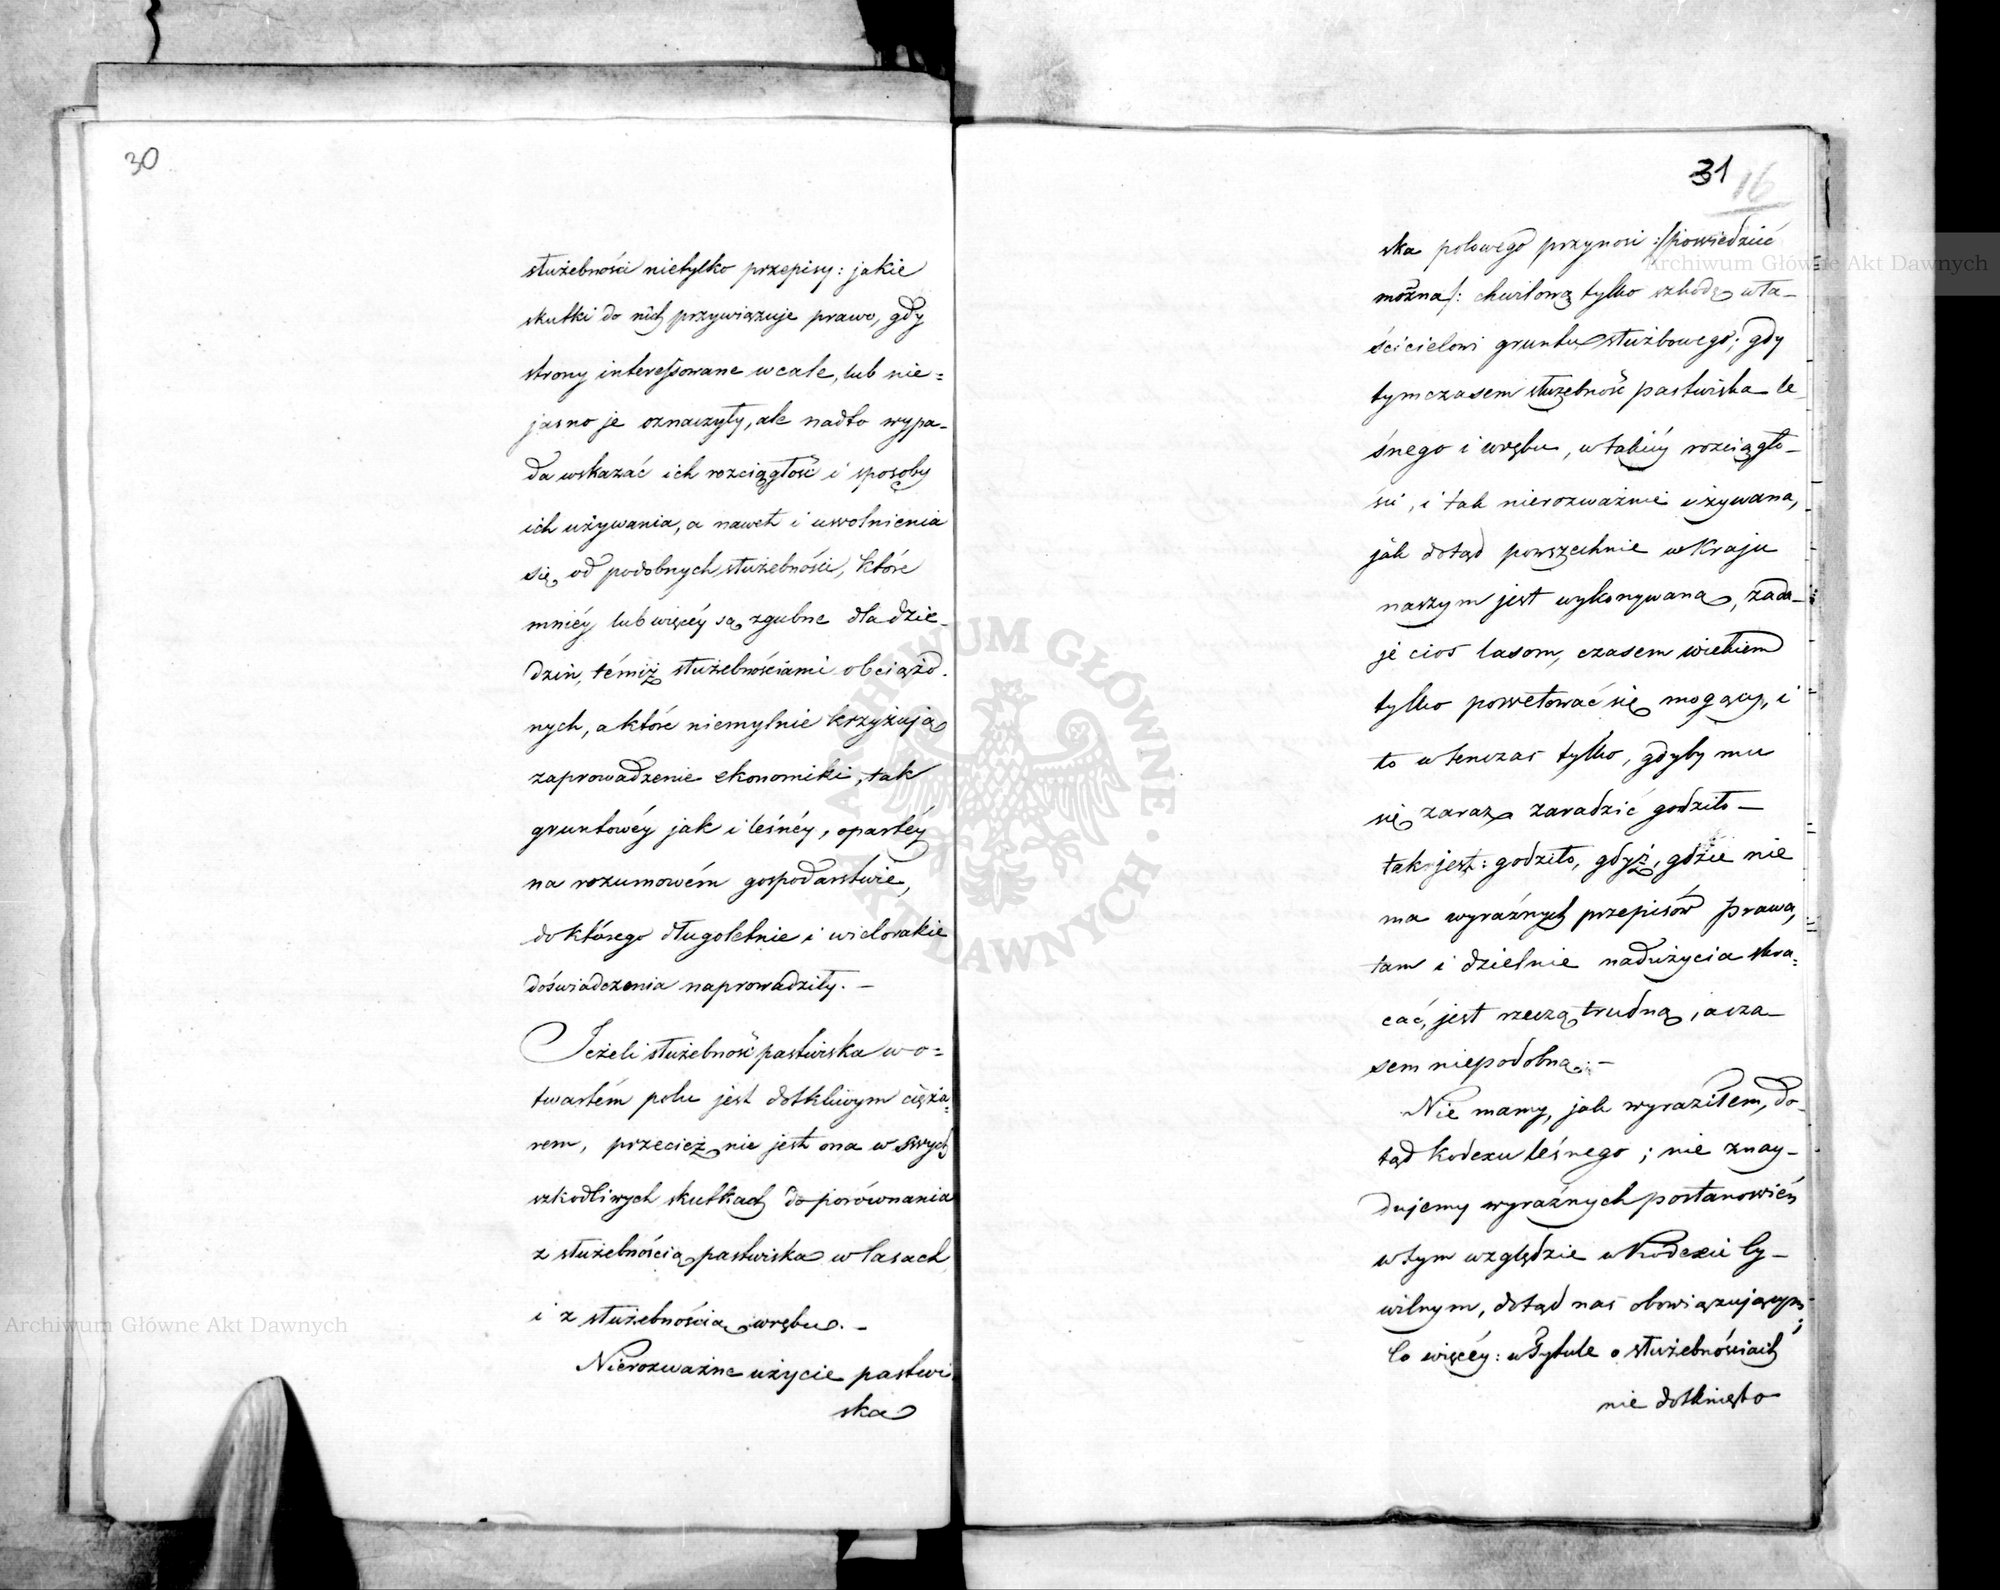 30
służebności nietylko przepisy: jakie
skutki do nich przywiązuje prawo, gdy
strony interessowane wcale, lub nie=
jasno je oznaczyły, ale nadto wypa-
da wskazać ich rozciągłość i sposoby
ich używania, a nawet i uwolnienia
się od podobnych służebności, które
mniéy lub więcéy są zgubne dla dzie-
dzin, témiż służebnościami obciążo-
nych, a które niemylnie krzyżują
zaprowadzenie ekonomiki, tak
gruntowéy jak i leśnéy, opartéy
na rozumowém gospodarstwie,
do którego długoletnie i wielorakie
doświadczenia naprowadziły. –
Jeżeli służebność pastwiska w o=
twartém polu jest dotkliwym cięża=
rem, przecież nie jest ona w swych
szkodliwych skutkach do porównania
z służebnością pastwiska w lasach
i z służebnością wrębu. –
Nierozważne użycie pastwi
ska
31
16
ska polowego przynosi :/powiedzieć
można/: chwilową tylko szkodę wła-
ścicielowi gruntu służbowego; gdy
tymczasem służebność pastwiska le-
śnego i wrębu, w takiéy rozciągło-
ści, i tak nierozważnie używana,
jak dotąd powszechnie w Kraju
naszym jest wykonywana, zada-
je cios lasom, czasem wiekiem
tylko powetować się mogący, i
to wtenczas tylko, gdyby mu
się zaraz zaradzić godziło –
tak jest: godziło, gdyż, gdzie nie
ma wyraźnych przepisów prawa,
tam i dzielnie nadużycia skra=
cać, jest rzeczą trudną, a cza-
sem niepodobną. –
Nie mamy, jak wyraziłem, do-
tąd kodexu leśnego; nie znay-
dujemy wyraźnych postanowień
w tym względzie w Kodexie Cy-
wilnym, dotąd nas obowiązującym;
Co więcéy: w Tytule o służebnościach
nie dotknięto
Archiwum Główne Akt Dawnych
Archiwum Główne Akt Dawnych
ARCHIWUM GŁÓWNE AKT DAWNYCH